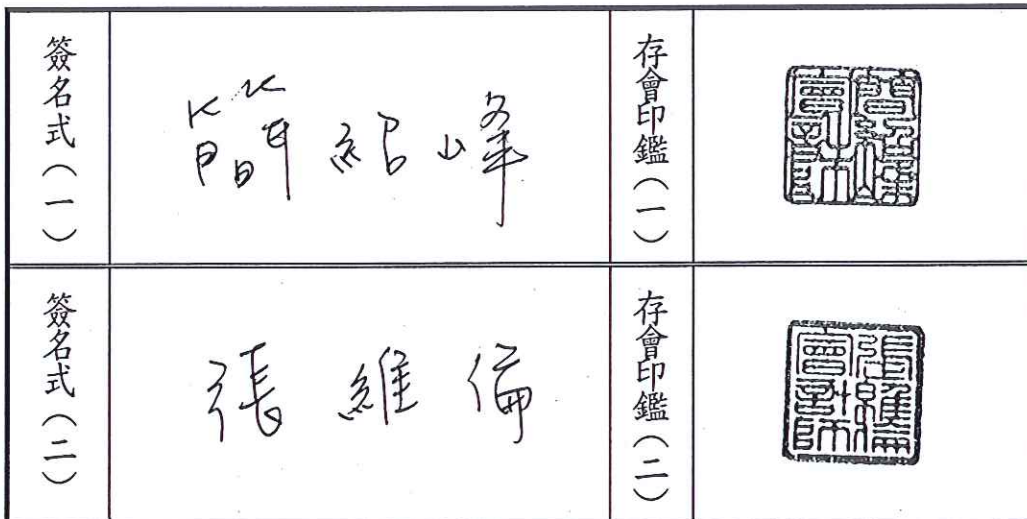 簽名式(一)
簡紹峰
存會印鑑(一)
簡紹峰
會計師
簽名式(二)
張維倫
存會印鑑(二)
張維倫
會計師